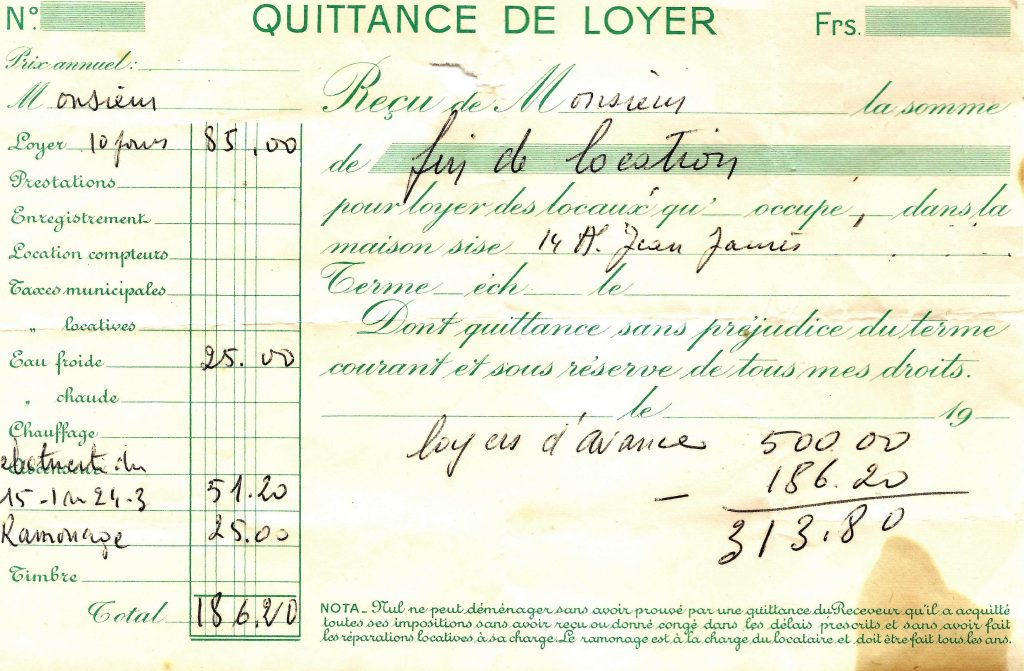 N° QUITTANCE DE LOYER Frs.
Prix annuel:
Monsieur
Loyer 10 jours 85.00
Prestations
Enregistrement
Location compteurs
Taxes municipales
„ locatives
Eau froide 25.00
„ chaude
Chauffage
Ascenseur du
15-1 au 24-3 51.20
Ramonage 25.00
Timbre
Total 186.20
Reçu de Monsieur la somme
de fin de location
pour loyer des locaux qu' occupé, dans la
maison sise 14 A. Jean Jaurès
Terme éch le
Dont quittance sans préjudice du terme
courant et sous réserve de tous mes droits.
le 19
loyers d'avance 500.00
- 186.20
313.80
NOTA_ Nul ne peut déménager sans avoir prouvé par une quittance du Receveur qu'il a acquitté
toutes ses impositions sans avoir reçu ou donné congé dans les délais prescrits et sans avoir fait
les réparations locatives à sa charge. Le ramonage est à la charge du locataire et doit être fait tous les ans.